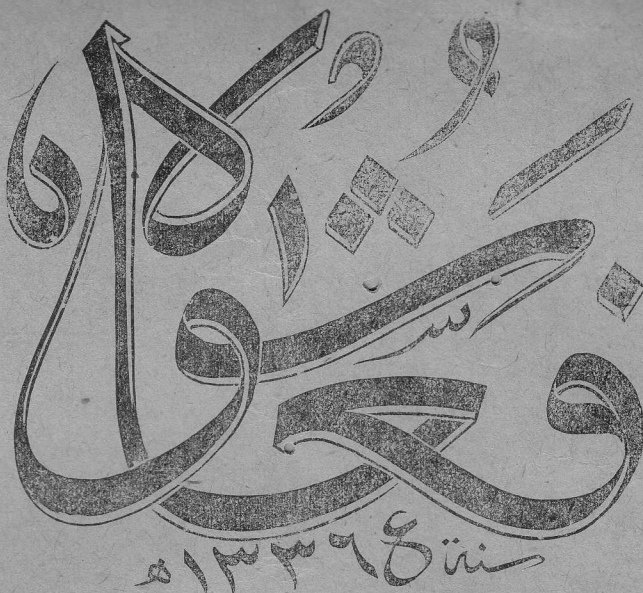 في شوال
سنة ١٣٣٦ ه